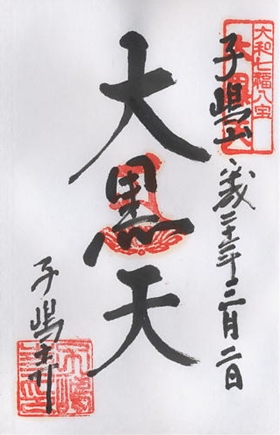 大和七福八宝
子嶋山
平成二十二年三月二日
大黒天
子嶋寺